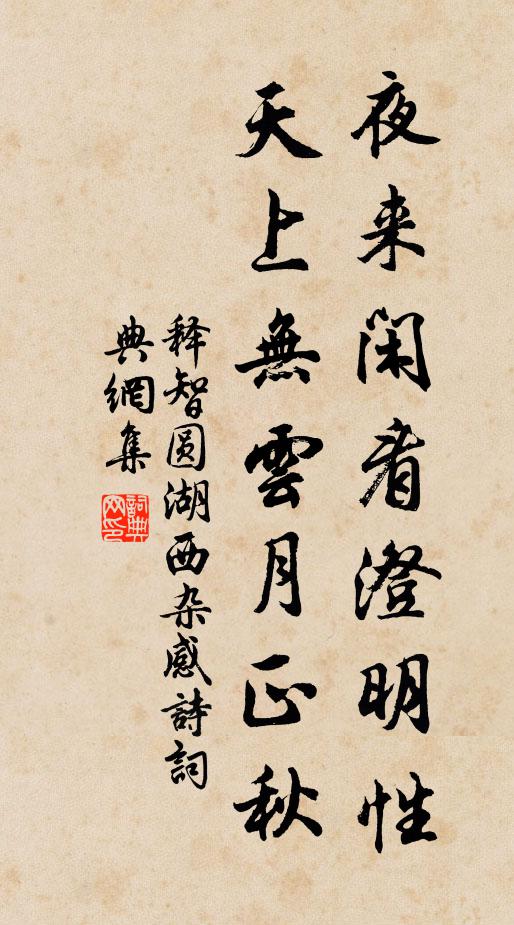 夜来閑看澄明性
天上無雲月正秋
释智圆湖西杂感詩詞
典網集
詞典網印